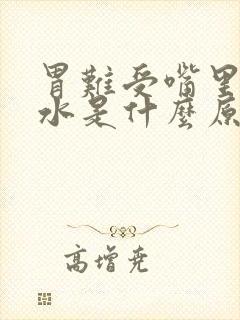 胃難受嘴里
水是什麼原
高增堯